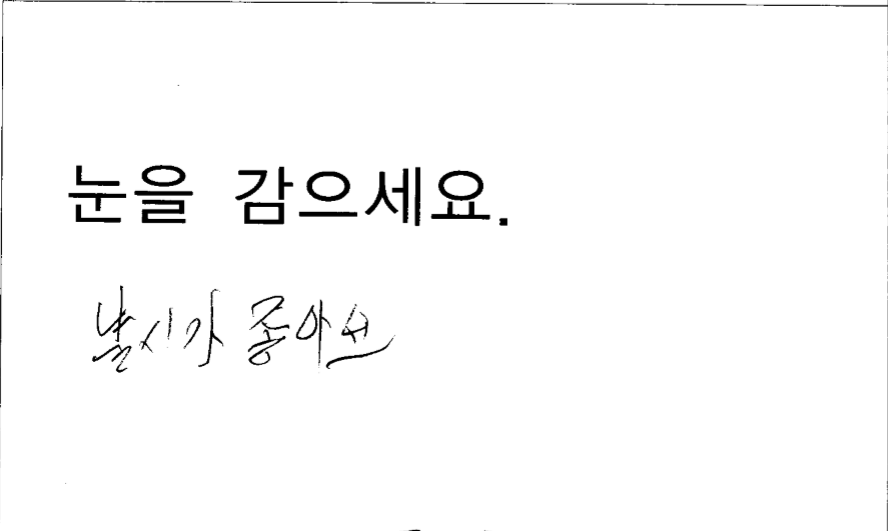 눈을 감으세요.
날시가 좋아요